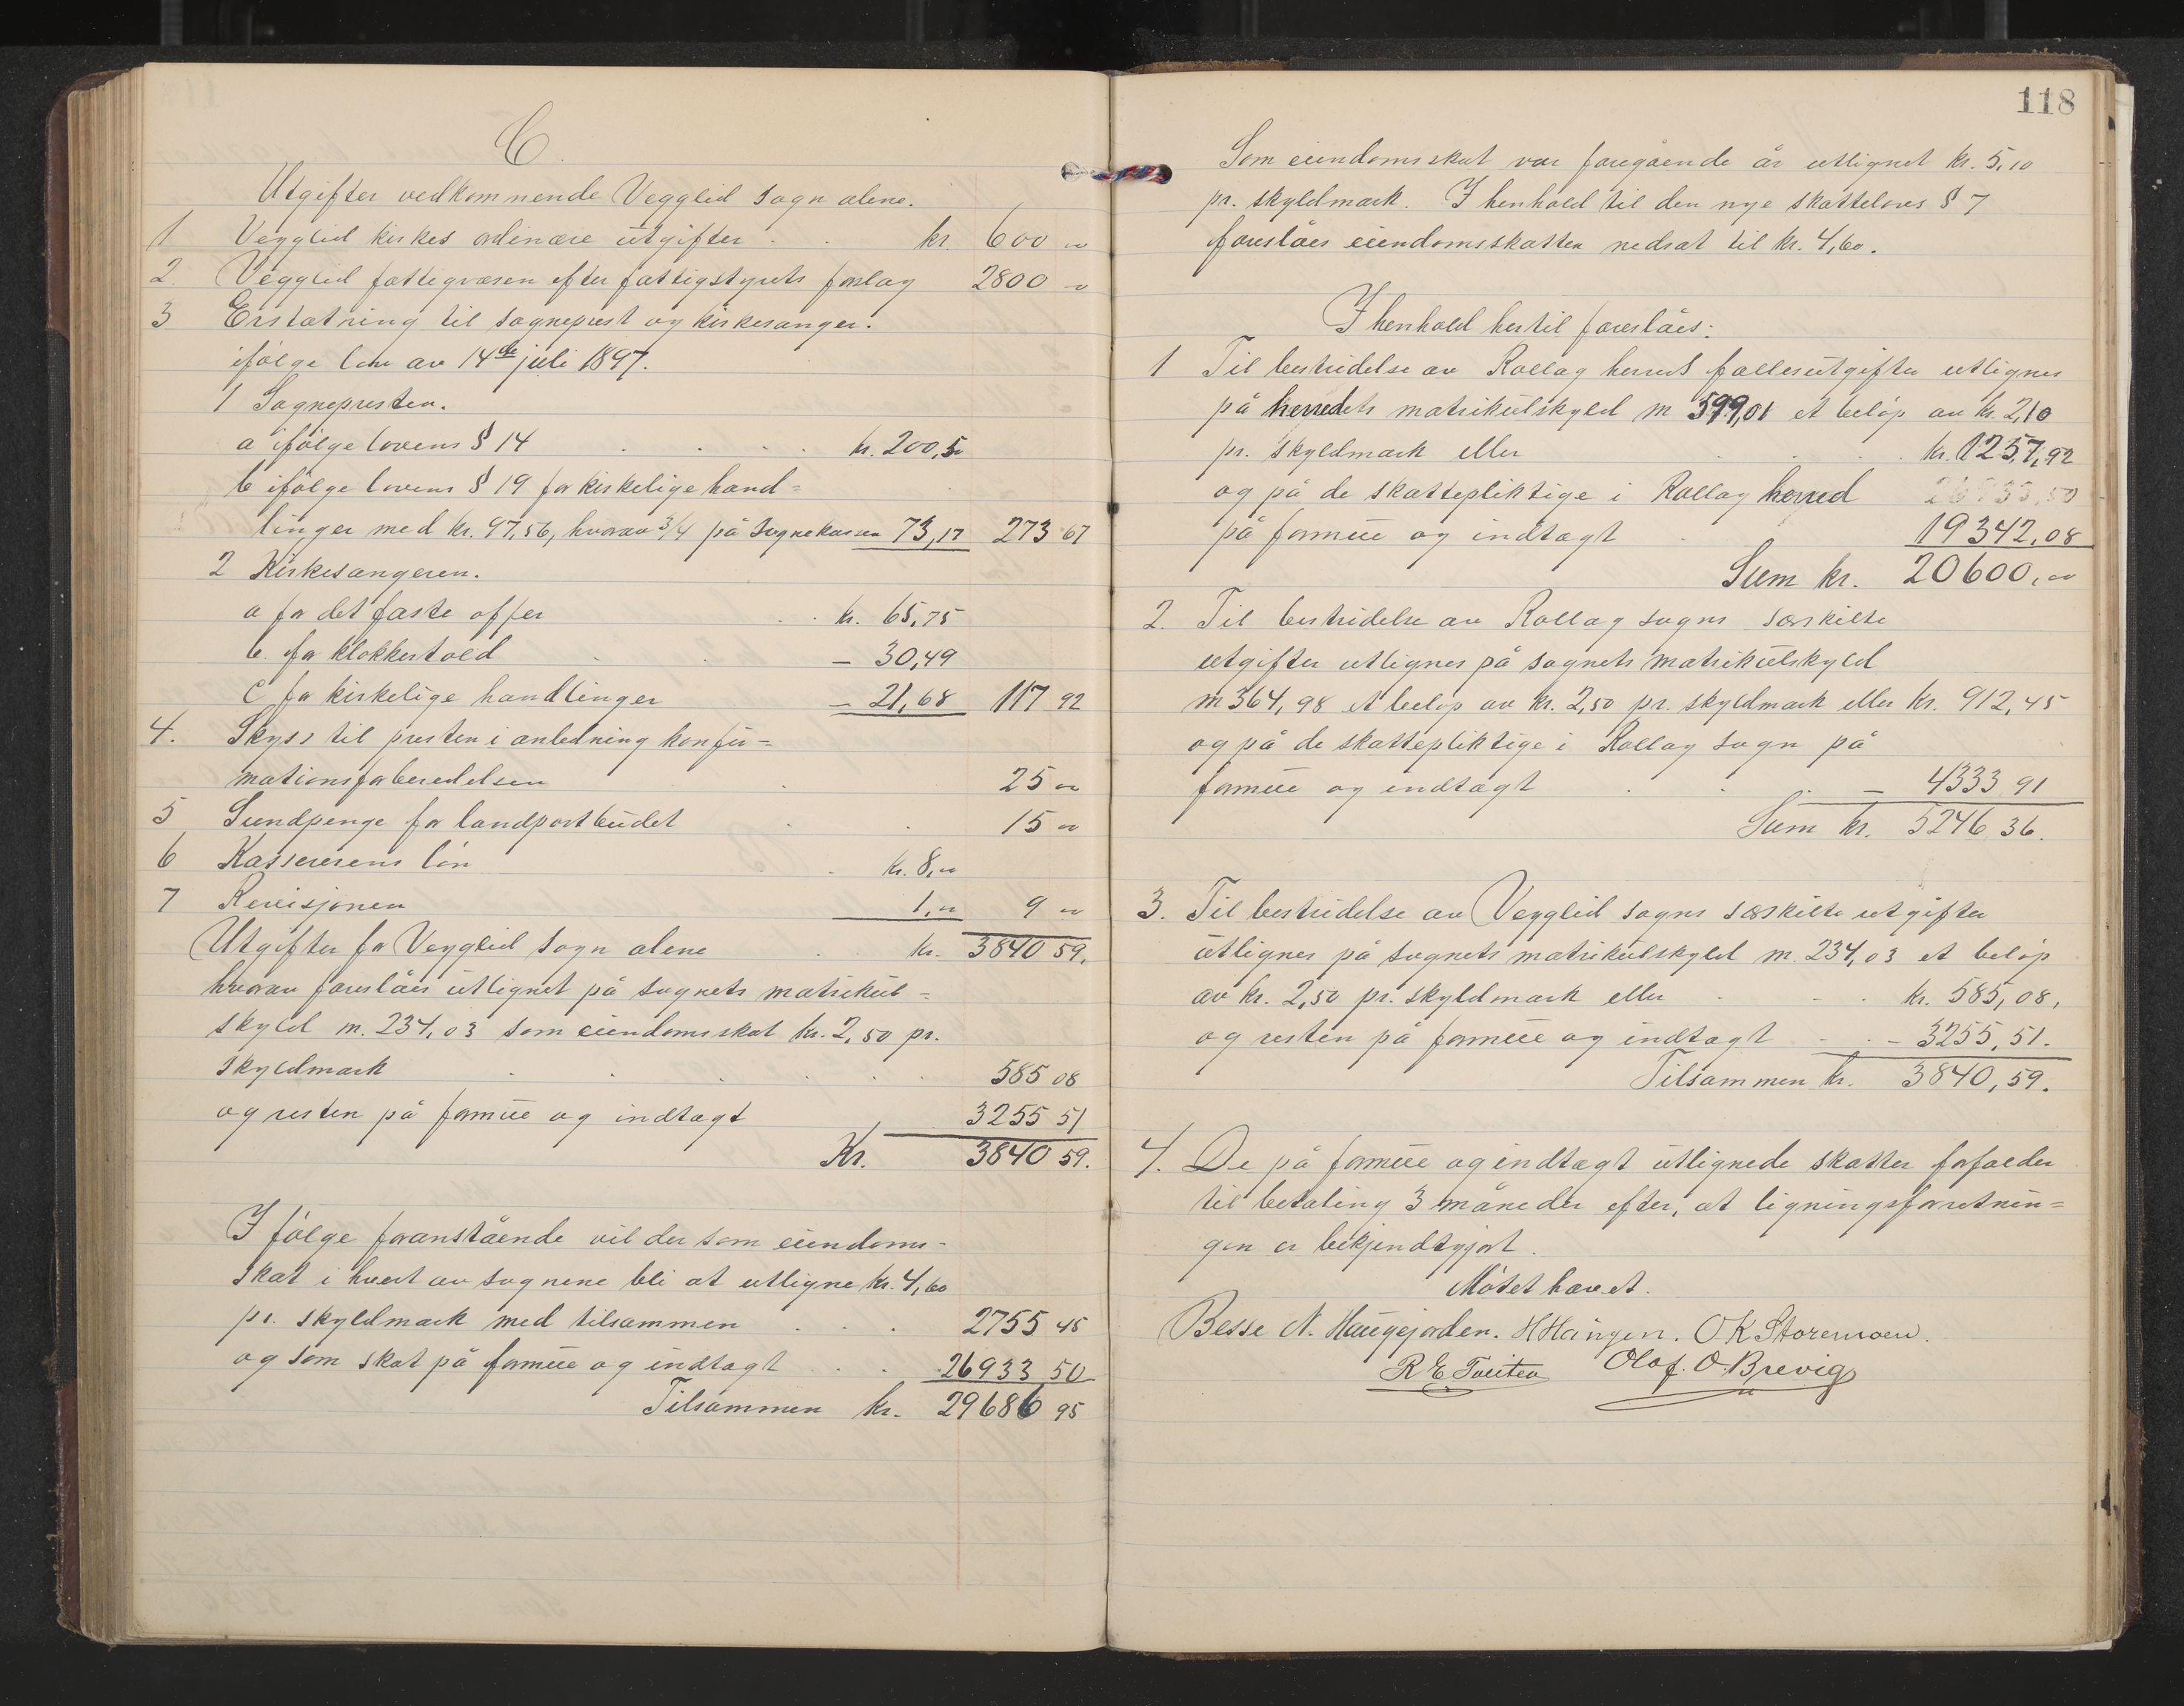 C.
Utgifter vedkommende Vegglid sogn alene.
1 Vegglid kirkes ordinære utgifter . . kr. 600 "
2. Vegglid fattigvæsen efter fattigstyrets forslag 2800 "
3 Erstatning til sogneprest og kirkesanger.
ifølge lov av 14de juli 1897.
1 Sognepresten.
a ifølge lovens § 14 . . . . kr. 200,50
b ifølge lovens § 19 for kirkelige hand=
linger med kr. 97,56, hvorav 3/4 på sognekassen 73,17 273 67
2 Kirkesangeren.
a for det faste offer . . kr. 65,75
b. for klokkertold . . — 30,49
c for kirkelige handlinger — 21,68 117 92
4. Skyss til presten i anledning konfir=
mationsforberedelsen . 25 "
5 Sundpenge for landpostbudet . . 15 "
6 Kassererens løn . . kr. 8,"
7 Revisjonen 1," 9 "
Utgifter for Vegglid sogn alene . . kr. 3840 59.
hvorav foreslåes utlignet på sognets matrikul=
skyld m. 234,03 som eiendomsskat kr. 2,50 pr.
skyldmark . . . . . . 585 08
og resten på formue og indtægt 3255 51
Kr. 3840 59.
I følge foranstående vil der som eiendoms-
skat i hvert av sognene bli at utligne kr. 4,60
pr. skyldmark med tilsammen . . . 2755 45
og som skat på formue og indtægt . . . 26933 50
Tilsammen kr. 29686 95
118
Som eiendomsskat var foregående år utlignet kr. 5,10
pr. skyldmark. I henhold til den nye skattelovs § 7
foreslåes eiendomsskatten nedsat til kr. 4,60.
I henhold hertil foreslåes:
1 Til bestridelse av Rollag herreds fællesutgifter utlignes
på herredets matrikulskyld m 599,01 et beløp av kr. 2,10
pr. skyldmark eller . . . . kr. 1257,92
og på de skattepliktige i Rollag herred
på formue og indtægt . 19342,08
Sum kr. 20600,"
2. Til bestridelse av Rollag sogns særskilte
utgifter utlignes på sognets matrikulskyld
m 364,98 et beløp av kr. 2,50 pr. skyldmark eller kr. 912,45
og på de skattepliktige i Rollag sogn på
formue og indtægt . . . — 4333 91
Sum kr. 5246 36.
3. Til bestridelse av Vegglid sogns særskilte utgifter
utlignes på sognets matrikulskyld m. 234,03 et beløp
av kr. 2,50 pr. skyldmark eller . . . kr. 585,08,
og resten på formue og indtægt . . — 3255,51.
Tilsammen kr. 3840,59.
4. De på formue og indtægt utlignede skatter forfalder
til betaling 3 måneder efter, at ligningsforretnin=
gen er bekjendtgjort.
Møtet hævet.
Besse N. Haugejorden. H Haugen. O K Storemoen.
R E Tveiten Olaf. O. Brevig